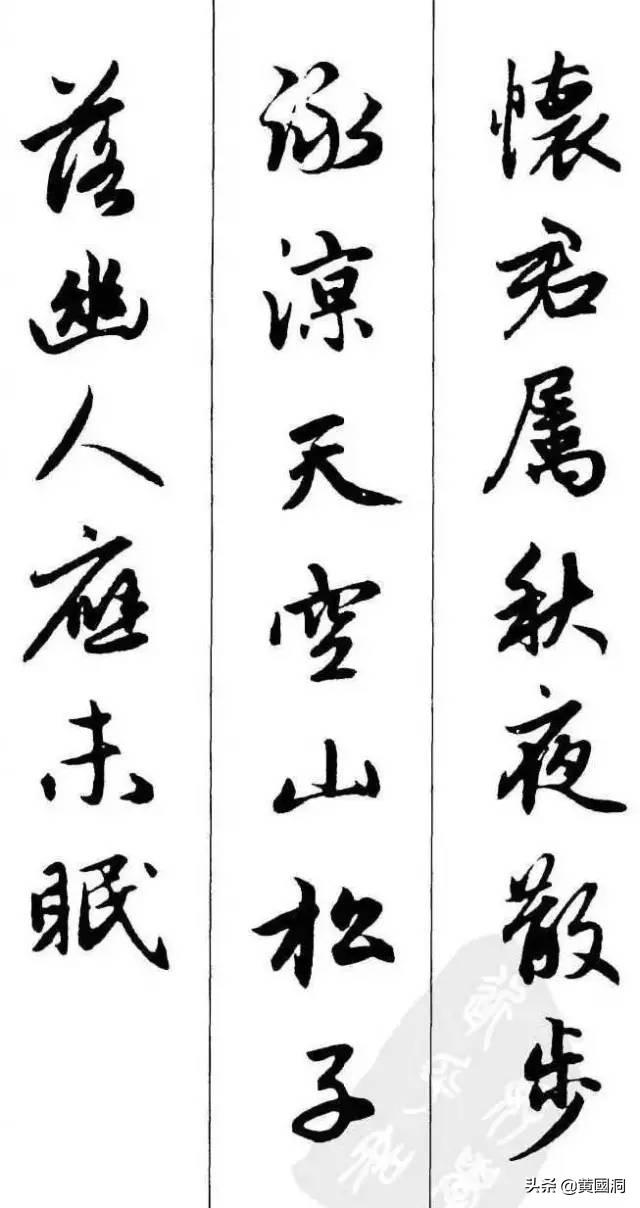 懷君屬秋夜散步
詠涼天空山松子
落幽人應未眠
头条 @黄國洞